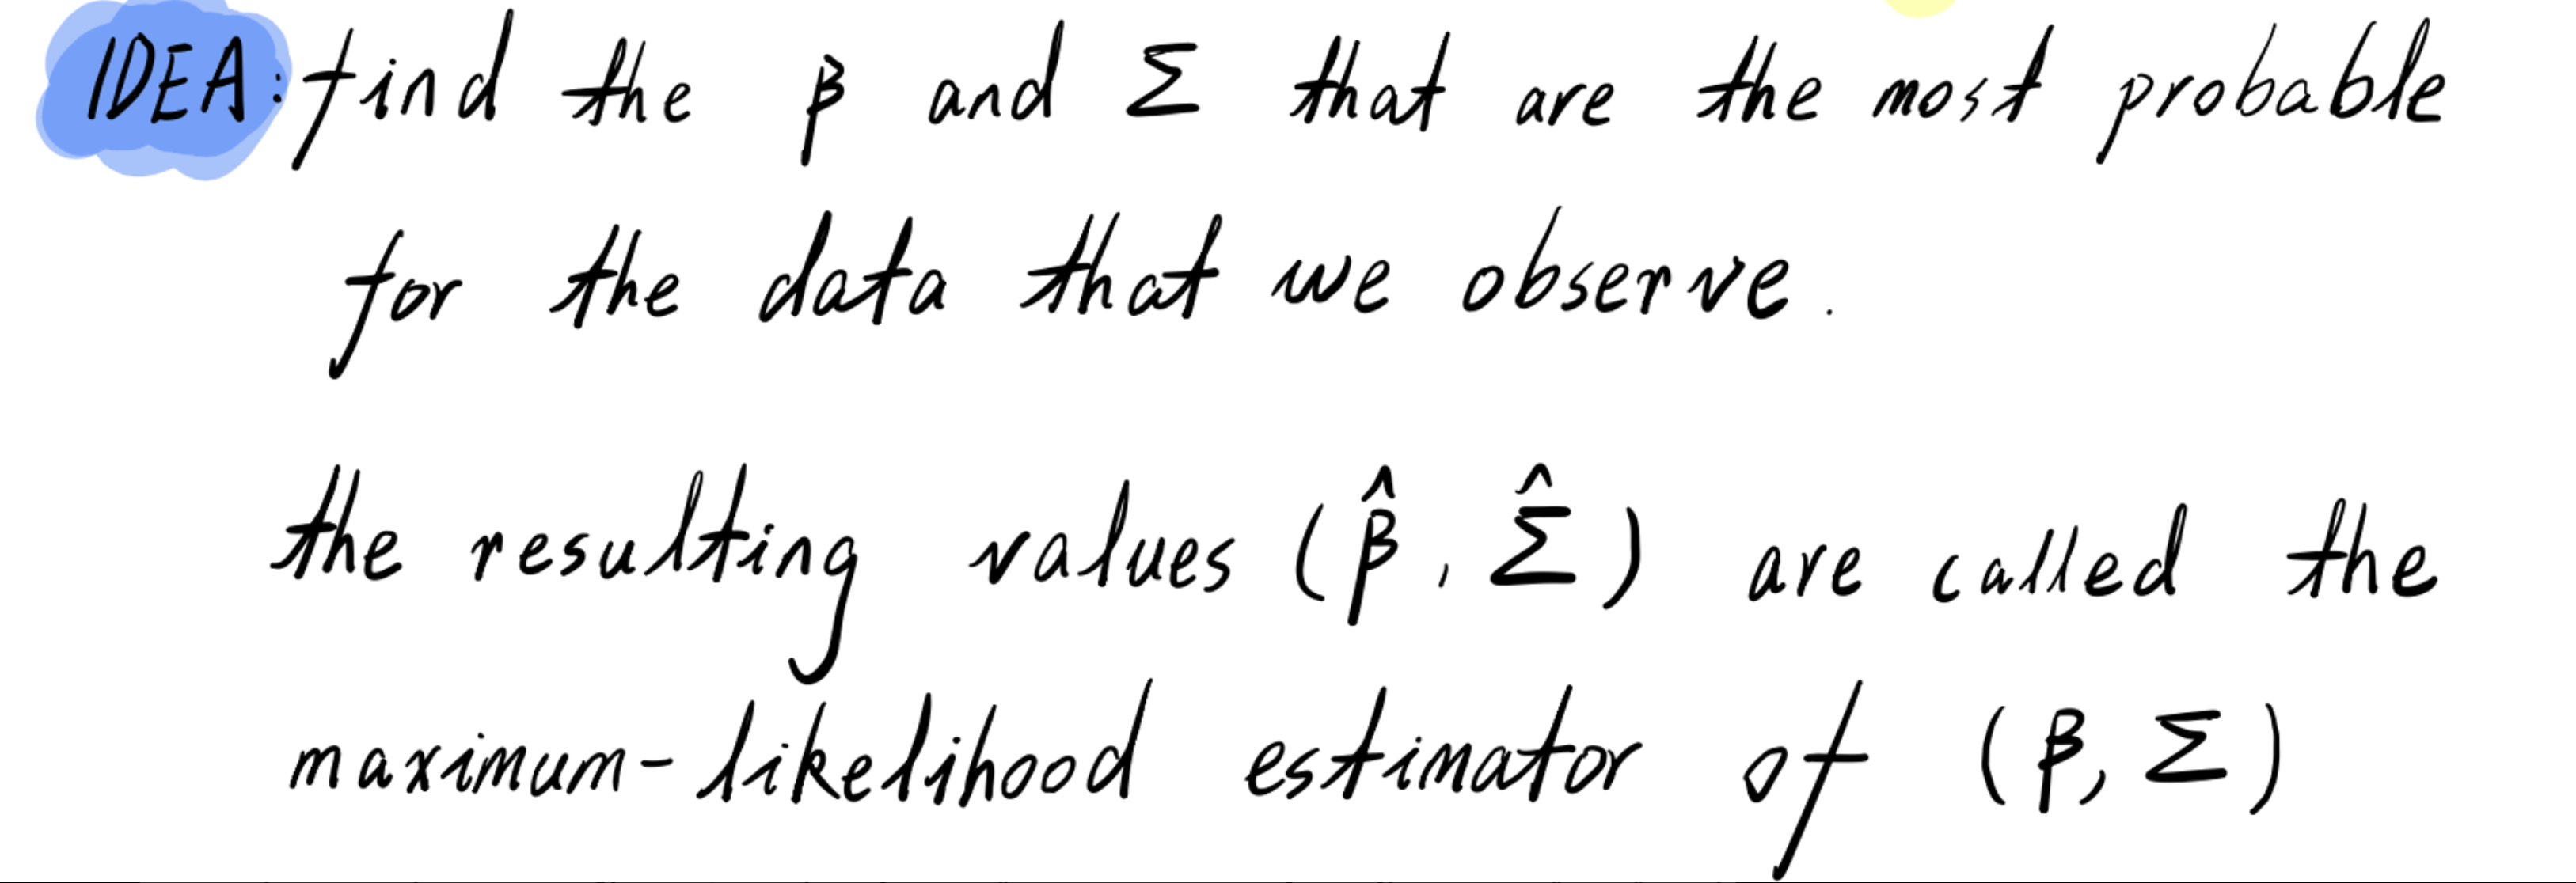 IDEA: find the β and Σ that are the most probable
for the data that we observe.
the resulting values (β̂, Σ̂) are called the
maximum-likelihood estimator of (β, Σ)